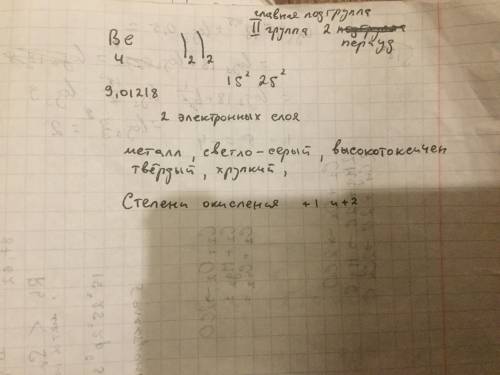 главная подгруппа
Be )₂)₂ II группа 2 подгруппа
4 период
9,01218 1s² 2s²
2 электронных слоя
металл, светло-серый, высокотоксичен
твёрдый, хрупкий,
Степени окисления +1 и +2